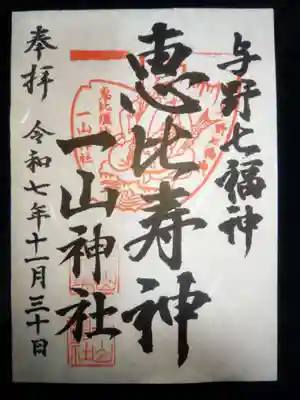 与野七福神
恵比寿神
一山神社
奉拝　令和七年十一月三十日
一山神社